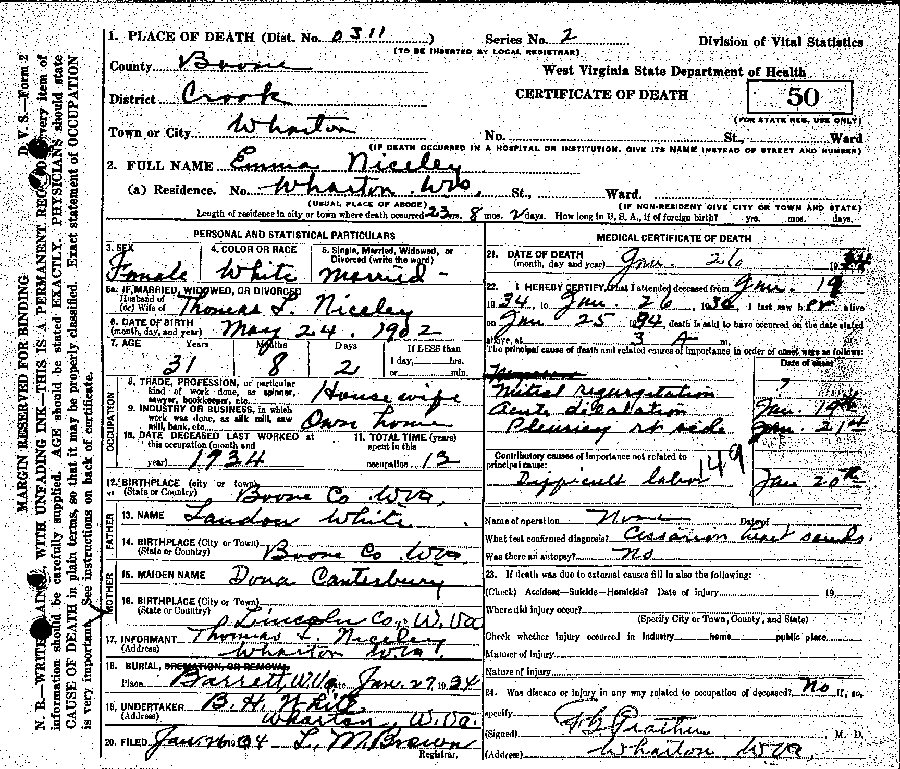 MARGIN RESERVED FOR BINDING
D. V. S.—Form 2
N. B.—WRITE PLAINLY, WITH UNFADING INK—THIS IS A PERMANENT RECORD. Every item of
information should be carefully supplied. AGE should be stated EXACTLY. PHYSICIANS should state
CAUSE OF DEATH in plain terms, so that it may be properly classified. Exact statement of OCCUPATION
is very important. See instructions on back of certificate.
1. PLACE OF DEATH (Dist. No. 0311) Series No. 2 Division of Vital Statistics
(TO BE INSERTED BY LOCAL REGISTRAR)
County Boone West Virginia State Department of Health
District Crook CERTIFICATE OF DEATH 50
(FOR STATE REG. USE ONLY)
Town or City Wharton No. St., Ward
(IF DEATH OCCURRED IN A HOSPITAL OR INSTITUTION, GIVE ITS NAME INSTEAD OF STREET AND NUMBER)
2. FULL NAME Emma Niceley
(a) Residence. No. Wharton W Va. St., Ward.
(USUAL PLACE OF ABODE) (IF NON-RESIDENT GIVE CITY OR TOWN AND STATE)
Length of residence in city or town where death occurred 23 yrs. 8 mos. 2 days. How long in U. S. A., if of foreign birth? yrs. mos. days.
PERSONAL AND STATISTICAL PARTICULARS
3. SEX 4. COLOR OR RACE 5. Single, Married, Widowed, or
Divorced (write the word)
Female White Married
5a. IF MARRIED, WIDOWED, OR DIVORCED
Husband of
(or) Wife of Thomas L. Niceley
6. DATE OF BIRTH
(month, day, and year) May 24. 1902
7. AGE Years Months Days If LESS than
1 day, hrs.
or min.
31 8 2
OCCUPATION
8. TRADE, PROFESSION, or particular
kind of work done, as spinner,
sawyer, bookkeeper, etc. House wife
9. INDUSTRY OR BUSINESS, in which
work was done, as silk mill, saw
mill, bank, etc. Own home
10. DATE DECEASED LAST WORKED at
this occupation (month and
year) 1934
11. TOTAL TIME (years)
spent in this
occupation 13
12. BIRTHPLACE (city or town)
(State or Country) Boone Co W Va.
FATHER
13. NAME Landon White
14. BIRTHPLACE (City or Town)
(State or Country) Boone Co W Va
MOTHER
15. MAIDEN NAME Dona Canterbury
16. BIRTHPLACE (City or Town)
(State or Country) Lincoln Co., W. Va
17. INFORMANT Thomas L. Niceley
(Address) Wharton W Va.
18. BURIAL, CREMATION, OR REMOVAL
Place Barrett, W. Va Date Jan. 27, 1934
19. UNDERTAKER B. H. White
(Address) Wharton W. Va.
20. FILED Jan 26 1934 L. M. Brown
Registrar.
MEDICAL CERTIFICATE OF DEATH
21. DATE OF DEATH
(month, day and year) Jan. 26 1934
22. I HEREBY CERTIFY, that I attended deceased from Jan. 19
1934, to Jan. 26 1934 I last saw her
on Jan 25 1934, death is said to have occurred on the date stated
above, at 3 A m.
The principal cause of death and related causes of importance in order of onset were as follows:
Date of onset
Mitral regurgitation ?
Acute dilalation Jan. 19th
Pleurisy rt side Jan. 21st
Contributory causes of importance not related to
principal cause:
Difficult labor 149 Jan 20th
Name of operation None Date of
What test confirmed diagnosis? heart sounds.
Was there an autopsy? No
23. If death was due to external causes fill in also the following:
(Check) Accident—Suicide—Homicide? Date of injury 19
Where did injury occur?
(Specify City or Town, County, and State)
Check whether injury occurred in industry home public place
Manner of injury
Nature of injury
24. Was disease or injury in any way related to occupation of deceased? No If, so,
specify
(Signed) M. D.
(Address) Wharton W Va.